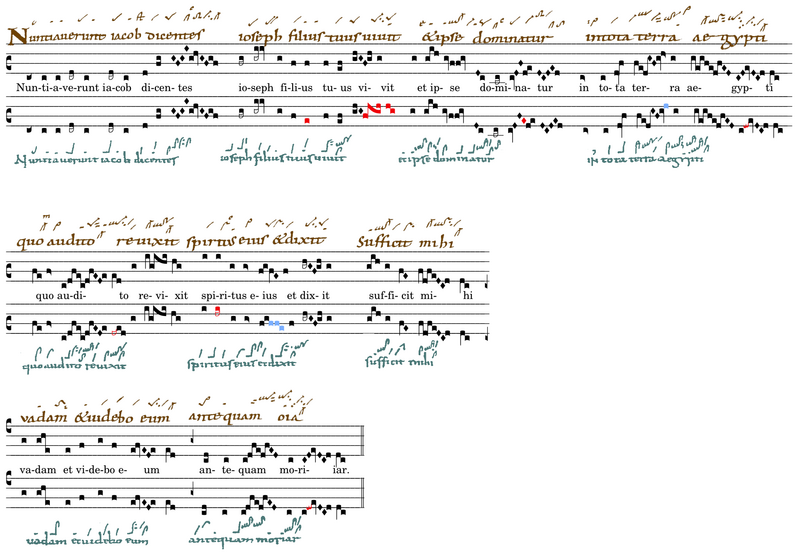 Nuntiauerunt iacob dicentes ioseph filius tuus uiuit &ipse dominatur intota terra ae-gypti
Nun-ti-a-ve-runt ia-cob di-cen-tes io-seph fi-li-us tu-us vi-vit et ip-se do-mi-na-tur in to-ta ter-ra ae-gyp-ti
Nuntiauerunt iacob dicentes ioseph filius tuus uiuit et ipse dominatur in tota terra aegypti
quo audito reuixit spiritus eius &dixit sufficit mihi
quo au-di-to re-vi-xit spi-ri-tus e-ius et dix-it suf-fi-cit mi-hi
quo audito reuixit spiritus eius et dixit sufficit mihi
vadam &uidebo eum antequam oia
va-dam et vi-de-bo e-um an-te-quam mo-ri-iar.
uadam et uidebo eum antequam moriar